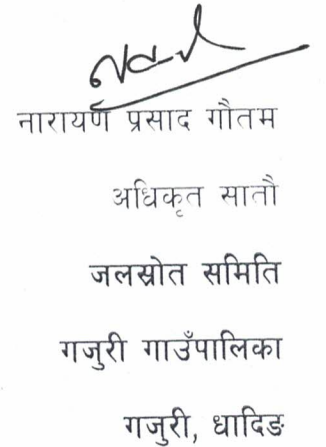 नारायण प्रसाद गौतम
अधिकृत सातौ
जलस्रोत समिति
गजुरी गाउँपालिका
गजुरी, धादिङ